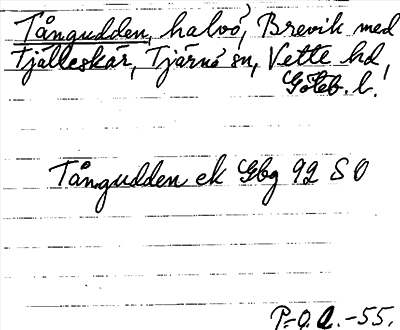 Tångudden, halvö, Brevik med
Tjälleskär, Tjärnö sn, Vette hd,
Göteb. l.
Tångudden ek Gbg 92 SO
P.-O. L. -55.